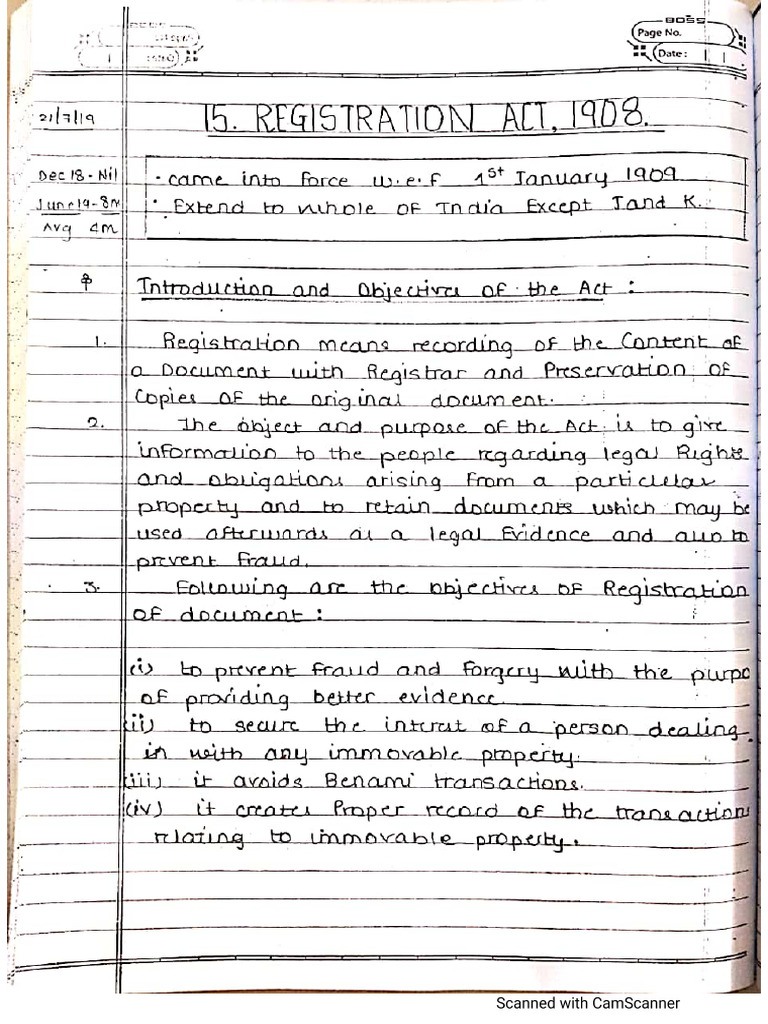 BOSS
Page No.
Date:
21/7/19
15. REGISTRATION ACT, 1908.
Dec 18 - Nil
June 19 - 8M
Avg 4M
· came into force w.e.f 1st January 1909
· Extend to whole of India Except J and K.
Introduction and Objectives of the Act :
1. Registration means recording of the Content of
a Document with Registrar and Preservation of
Copies of the original document.
2. The object and purpose of the Act is to give
information to the people regarding legal Rights
and obligations arising from a particular
property and to retain documents which may be
used afterwards as a legal Evidence and also to
prevent fraud.
3. Following are the objectives of Registration
of document :
(i) to prevent fraud and forgery with the purpo
of providing better evidence.
(ii) to secure the interest of a person dealing
in with any immovable property.
(iii) it avoids Benami transactions.
(iv) it creates Proper record of the transactions
relating to immovable property.
Scanned with CamScanner